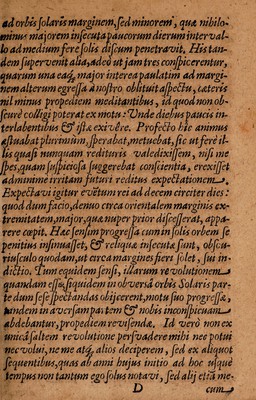 ad orbis solaris marginem, sed minorem, quæ nihilo-
minus majorem insecuta paucorum dierum interval-
lo ad medium fere solis discum penetravit, His tan-
dem supervenit alia, adeo ut jam tres conspicerentur,
quarum una eaq́; major interea paulatim ad margi-
nem alterum egressa à nostro oblituit aspectu, cæteris
nil minus propediem meditantibus, id quod non ob-
scurè colligi poterat ex motu: Unde diebus paucis in-
terlabentibus & istæ exivêre. Profecto hic animus
æstuabat plurimum, sperabat, metuebat, sic ut ferè il-
lis quasi nunquam redituris valedixissem, nisi me
spes, quam suspicioso suggerebat conscientia, erexisset
ad minime irritam futuri reditus expectationem.
Expectavi igitur evêtum rei ad decem circiter dies:
quod dum facio, denuo circa orientalem marginis ex-
tremitatem, major, quæ nuper prior discesserat, appa-
rere cœpit. Hæc sensim progressa cum in solis orbem se
penitius insinuasset, & reliquæ insecutæ sunt, obscu-
riusculo quodam, ut circa margines fieri solet, sui in-
dictio. Tum equidem sensi, illarum revolutionem
quandam esse; siquidem in obversâ orbis Solaris par-
te dum sese spectandas objicerent, motu suo progressæ,
tandem in aversam partem & nobis inconspicuam
abdebantur, propediem revisendæ. Id verò non ex
unicâ saltem revolutione persvadere mihi nec potui
nec volui, ne me atq́; alios deciperem, sed ex aliquot
sequentibus, quas ab anni hujus initio ad hoc usque
tempus non tantum ego solus notavi, sed alij etiã me-
D cum